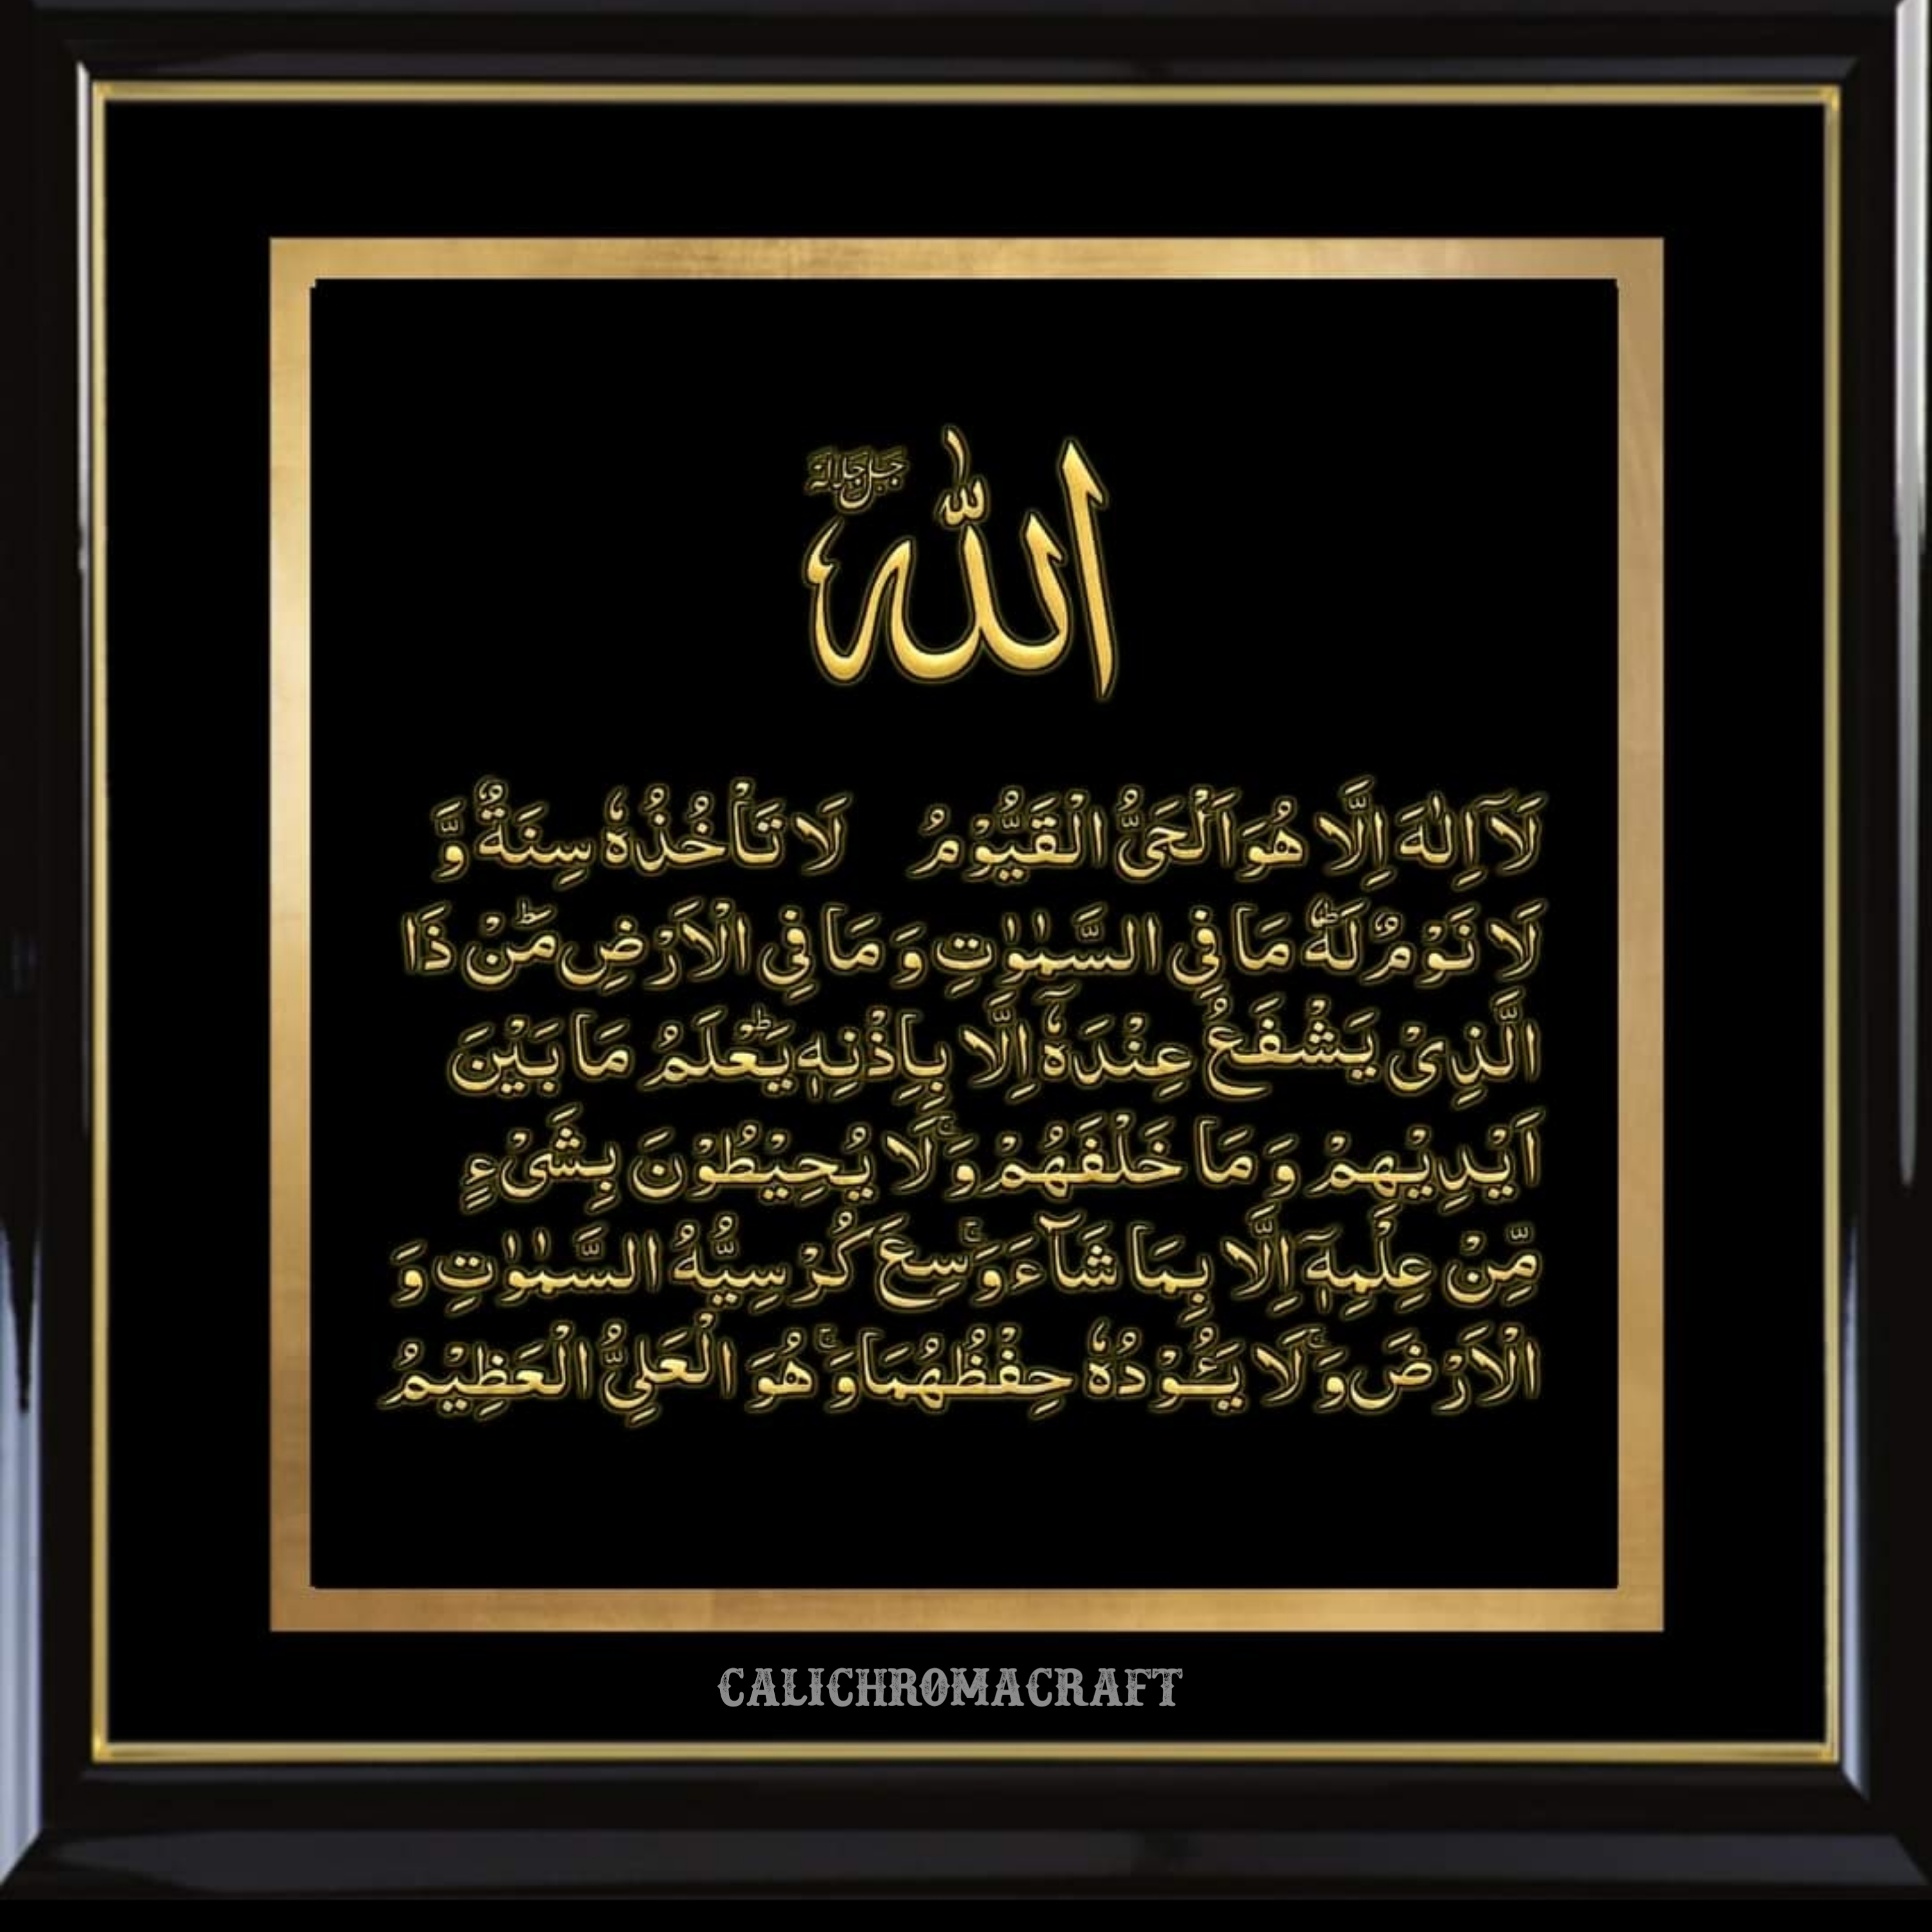 الله جل جلاله
لَآ اِلٰهَ اِلَّا هُوَ اَلْحَيُّ الْقَيُّوْمُ لَا تَاْخُذُهٗ سِنَةٌ وَّ
لَا نَوْمٌ لَهٗ مَا فِي السَّمٰوٰتِ وَ مَا فِي الْاَرْضِ مَنْ ذَا
الَّذِیْ یَشْفَعُ عِنْدَهٗۤ اِلَّا بِاِذْنِهٖ یَعْلَمُ مَا بَیْنَ
اَیْدِیْهِمْ وَ مَا خَلْفَهُمْ وَ لَا یُحِیْطُوْنَ بِشَیْءٍ
مِّنْ عِلْمِهٖۤ اِلَّا بِمَا شَآءَ وَسِعَ كُرْسِیُّهُ السَّمٰوٰتِ وَ
الْاَرْضَ وَ لَا یَــُٔوْدُهٗ حِفْظُهُمَا وَ هُوَ الْعَلِیُّ الْعَظِیْمُ
CALICHROMACRAFT